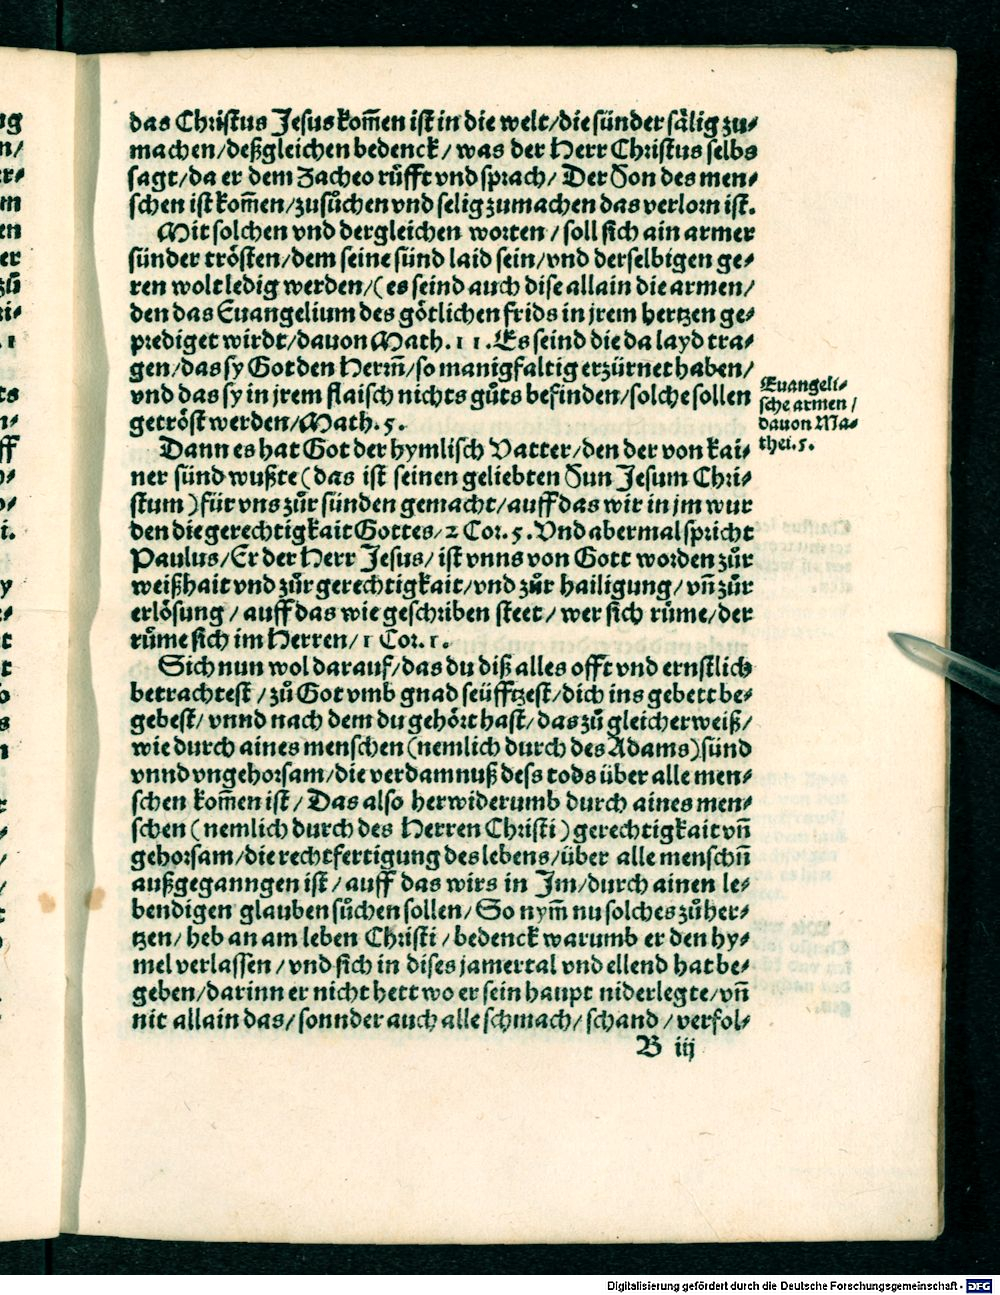 das Christus Jesus kom̃en ist in die welt/ die sünder sälig zu⸗
machen/ deßgleichen bedenck/ was der Herr Christus selbs
sagt/ da er dem Zacheo růfft vnd sprach/ Der Son des men⸗
schen ist kom̃en/ zusůchen vnd selig zumachen das verlorn ist.
Mit solchen vnd dergleichen worten/ soll sich ain armer
sünder trösten/ dem seine sünd laid sein/ vnd derselbigen ge⸗
ren wolt ledig werden/ (es seind auch dise allain die armen/
den das Euangelium des götlichen frids in jrem hertzen ge⸗
prediget wirdt/ dauon Math. 11. Es seind die da layd tra⸗
gen/ das sy Got den Herrn̄/ so manigfaltig erzürnet haben/
vnd das sy in jrem flaisch nichts gůts befinden/ solche sollen
getröst werden/ Math. 5.
Euangeli⸗
sche armen/
dauon Ma⸗
thei. 5.
Dann es hat Got der hymlisch Vatter/ den der von kai⸗
ner sünd wußte (das ist seinen geliebten Sun Jesum Chri⸗
stum) für vns zůr sünden gemacht/ auff das wir in jm wur
den die gerechtigkait Gottes/ 2 Cor. 5. Vnd abermal spricht
Paulus/ Er der Herr Jesus/ ist vnns von Gott worden zůr
weißhait vnd zůr gerechtigkait/ vnd zůr hailigung/ vñ zůr
erlösung/ auff das wie geschriben steet/ wer sich růme/ der
růme sich im Herren/ 1 Cor. 1.
Sich nun wol darauf/ das du diß alles offt vnd ernstlich
betrachtest/ zů Got vmb gnad seüfftzest/ dich ins gebett be⸗
gebest/ vnnd nach dem du gehört hast/ das zů gleicher weiß/
wie durch aines menschen (nemlich durch des Adams) sünd
vnnd vngehorsam/ die verdamnuß dess tods über alle men⸗
schen kom̃en ist/ Das also herwiderumb durch aines men⸗
schen (nemlich durch des Herren Christi) gerechtigkait vñ
gehorsam/ die rechtfertigung des lebens/ über alle menschñ
außgeganngen ist/ auff das wirs in Jm/ durch ainen le⸗
bendigen glauben sůchen sollen/ So nym̃ nu solches zů her⸗
tzen/ heb an am leben Christi/ bedenck warumb er den hy⸗
mel verlassen/ vnd sich in dises jamertal vnd ellend hat be⸗
geben/ darinn er nicht hett wo er sein haupt niderlegte/ vñ
nit allain das/ sonnder auch alle schmach/ schand/ verfol⸗
B iij
Digitalisierung gefördert durch die Deutsche Forschungsgemeinschaft - DFG